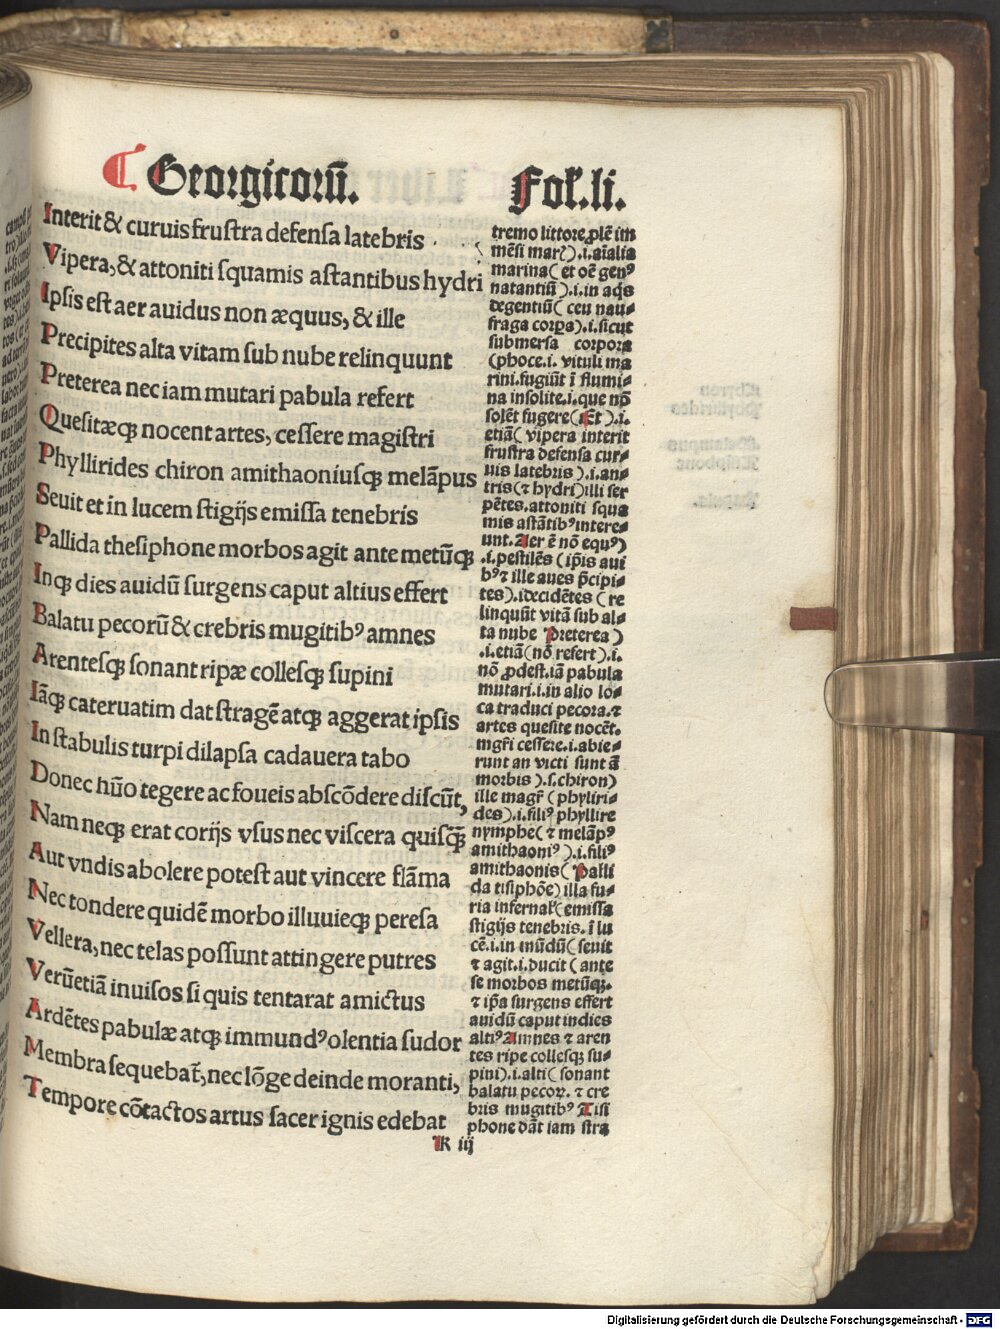 Georgicorũ.
Fol.li.
Interit & curuis frustra defensa latebris
Vipera, & attoniti squamis astantibus hydri
Ipsis est aer auidus non æquus, & ille
Precipites alta vitam sub nube relinquunt
Preterea nec iam mutari pabula refert
Quesitæq; nocent artes, cessere magistri
Phyllirides chiron amithaoniusq; melãpus
Seuit et in lucem stigijs emissa tenebris
Pallida thesiphone morbos agit ante metũq;
Inq; dies auidũ surgens caput altius effert
Balatu pecorũ & crebris mugitibꝰ amnes
Arentesq; sonant ripæ collesq; supini
Iãq; cateruatim dat stragẽ atq; aggerat ipsis
In stabulis turpi dilapsa cadauera tabo
Donec hũo tegere ac foueis abscõdere discũt,
Nam neq; erat corijs vsus nec viscera quisq̃
Aut vndis abolere potest aut vincere flãma
Nec tondere quidẽ morbo illuuieq; peresa
Vellera, nec telas possunt attingere putres
Verũetiã inuisos si quis tentarat amictus
Ardẽtes pabulæ atq; immundꝰ olentia sudor
Membra sequebat̃, nec lõge deinde moranti,
Tempore cõtactos artus sacer ignis edebat
K iij
tremo littore ꝓlẽ im
mẽsi marꝭ).i.aĩalia
marina( et oẽ genꝰ
natantiũ).i.in aq̃s
degentiũ( ceu nau⸗
fraga corꝑa).i.sicut
submersa corpora
(phoce.i. vituli ma
rini.fugiũt ĩ flumi⸗
na insolite.i.que nõ
solẽt fugere( Et ).i.
etiã( vipera interit
frustra defensa cur⸗
uis latebris ).i.an⸗
tris(⁊ hydri)illi ser
pẽtes.attoniti squa
mis astãtibꝰ intere⸗
unt. Aer ẽ nõ equꝰ)
.i.pestilẽs (ip̃is aui
bꝰ ⁊ ille aues p̃cipi⸗
tes).i.decidẽtes ( re
linquũt vitã sub al⸗
ta nube Preterea )
.i.etiã( nõ refert ).i.
nõ ꝓdest.iã pabula
mutari.i.in alio lo⸗
ca traduci pecora.⁊
artes quesite nocẽt.
mgr̃i cessere.i.abie⸗
runt an victi sunt ã
morbis ).s.chiron)
ille magr̃ ( phyliri⸗
des).i.filiꝰ phyllire
nymphe( ⁊ melãpꝰ
amithaoniꝰ ).i.filiꝰ
amithaonis( Palli
da tisiphõe) illa fu⸗
ria infernaƚ( emissa
stigijs tenebris. ĩ lu
cẽ.i.in mũdũ( seuit
⁊ agit.i.ducit ( ante
se morbos metũq;.
⁊ ip̃a surgens effert
auidũ caput in dies
altiꝰ Amnes ⁊ aren
tes ripe collesq; su⸗
pini).i.alti( sonant
balatu pecoꝝ. ⁊ cre
bris mugitibꝰ Tisi
phone dãt iam stra
Digitalisierung gefördert durch die Deutsche Forschungsgemeinschaft - DFG